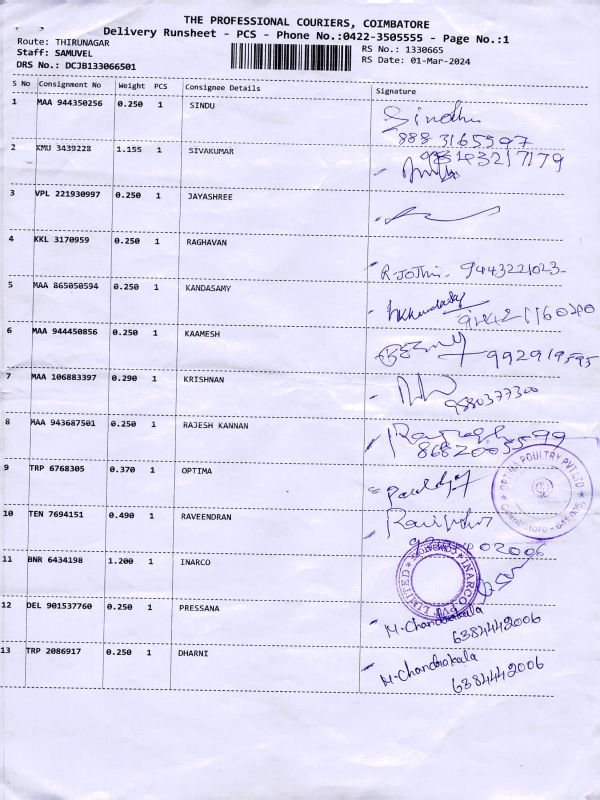 THE PROFESSIONAL COURIERS, COIMBATORE
Delivery Runsheet - PCS - Phone No.:0422-3505555 - Page No.:1
Route: THIRUNAGAR
Staff: SAMUVEL
DRS No.: DCJB133066501
RS No.: 1330665
RS Date: 01-Mar-2024
S No Consignment No Weight PCS Consignee Details Signature
1 MAA 944350256 0.250 1 SINDU Sindhu
888 3165597
2 KMU 3439228 1.155 1 SIVAKUMAR
3 VPL 221930997 0.250 1 JAYASHREE
4 KKL 3170959 0.250 1 RAGHAVAN R.Jothi. 9443221023
5 MAA 865050594 0.250 1 KANDASAMY
6 MAA 944450856 0.250 1 KAAMESH 992919595
7 MAA 106883397 0.290 1 KRISHNAN
9880377300
8 MAA 943687501 0.250 1 RAJESH KANNAN
8682005599
9 TRP 6768305 0.370 1 OPTIMA
OPTIMA POULTRY PVT LTD
10 TEN 7694151 0.490 1 RAVEENDRAN
11 BNR 6434198 1.200 1 INARCO
INARCO LIMITED
12 DEL 901537760 0.250 1 PRESSANA M.Chandrakala
6384442006
13 TRP 2086917 0.250 1 DHARNI M.Chandrakala
6384442006